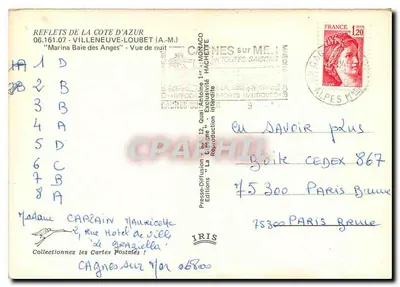 REFLETS DE LA COTE D'AZUR
06.161.07 - VILLENEUVE-LOUBET (A.-M.)
"Marina Baie des Anges" - Vue de nuit
1 D
2 B
3 B
4 A
5 D
6 C
7 B
8 A
Madame CAPLAIN Mauricette
2, rue Hotel de Ville
"le Graziella"
Collectionnez les Cartes Postales !
CAGNES sur Mer 06800
Presse-Diffusion 12, Quai Antoine 1er - MONACO
Editions "La Cigogne" - Exclusivité HACHETTE
Reproduction interdite
IRIS
CAGNES sur MER
TOUTES SAISONS
FRANCE
1,20
ALPES MARITIMES
en savoir plus
Boite CEDEX 867
75300 PARIS Brune
75300 PARIS BRUNE